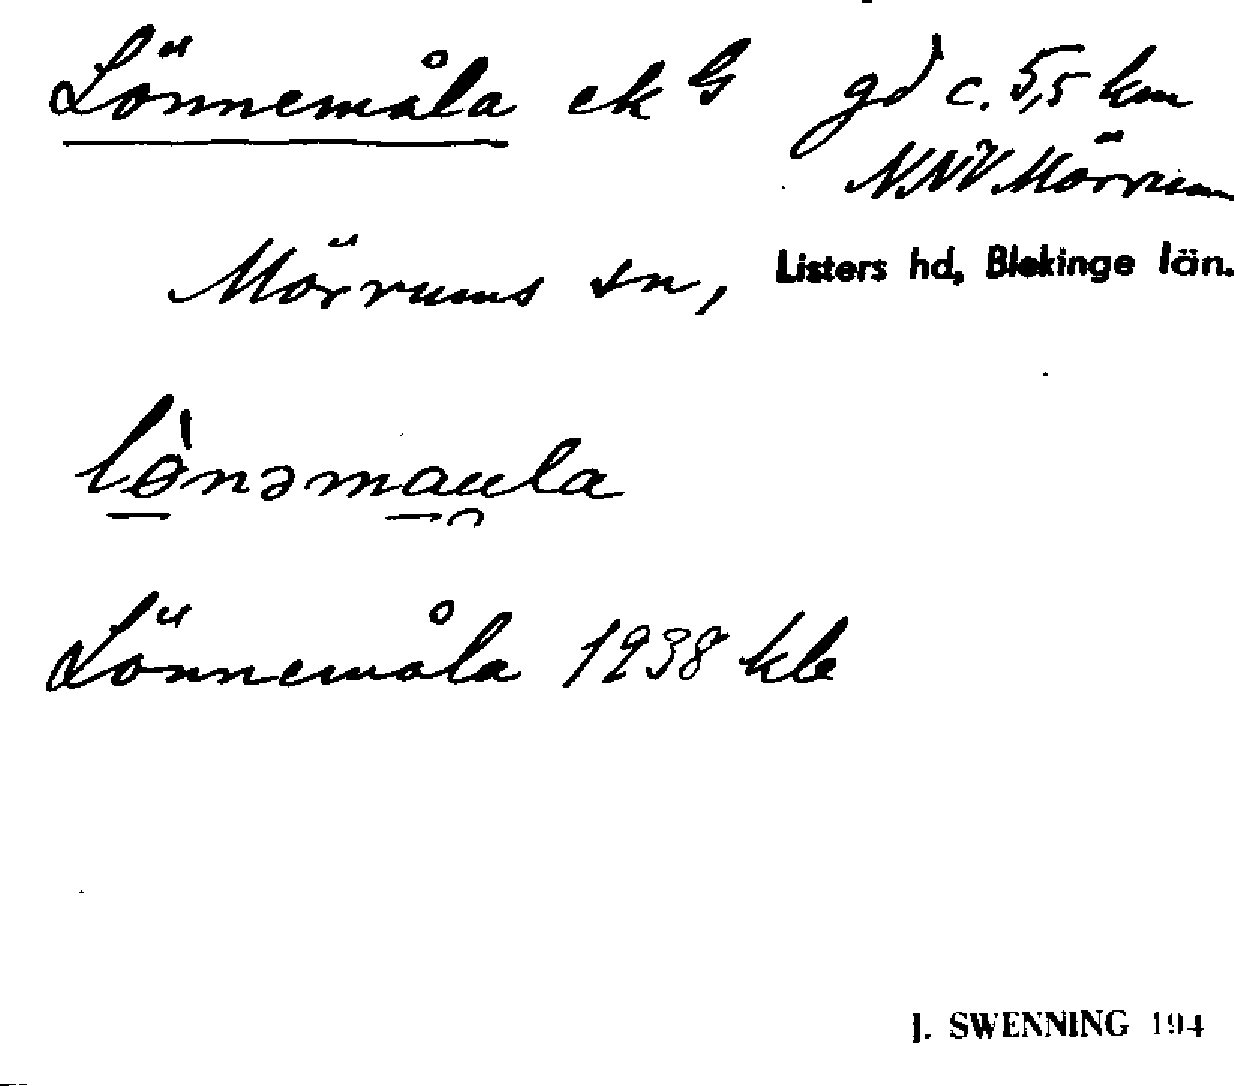 Lönnemåla ek G gd c. 5,5 km
NNV Mörrum
Mörrums sn, Listers hd, Blekinge län.
lønəmau̯la
Lönnemåla 1938 kb
J. SWENNING 194